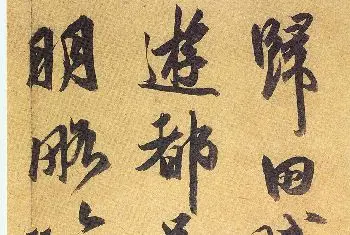 歸田賦
遊都
明略